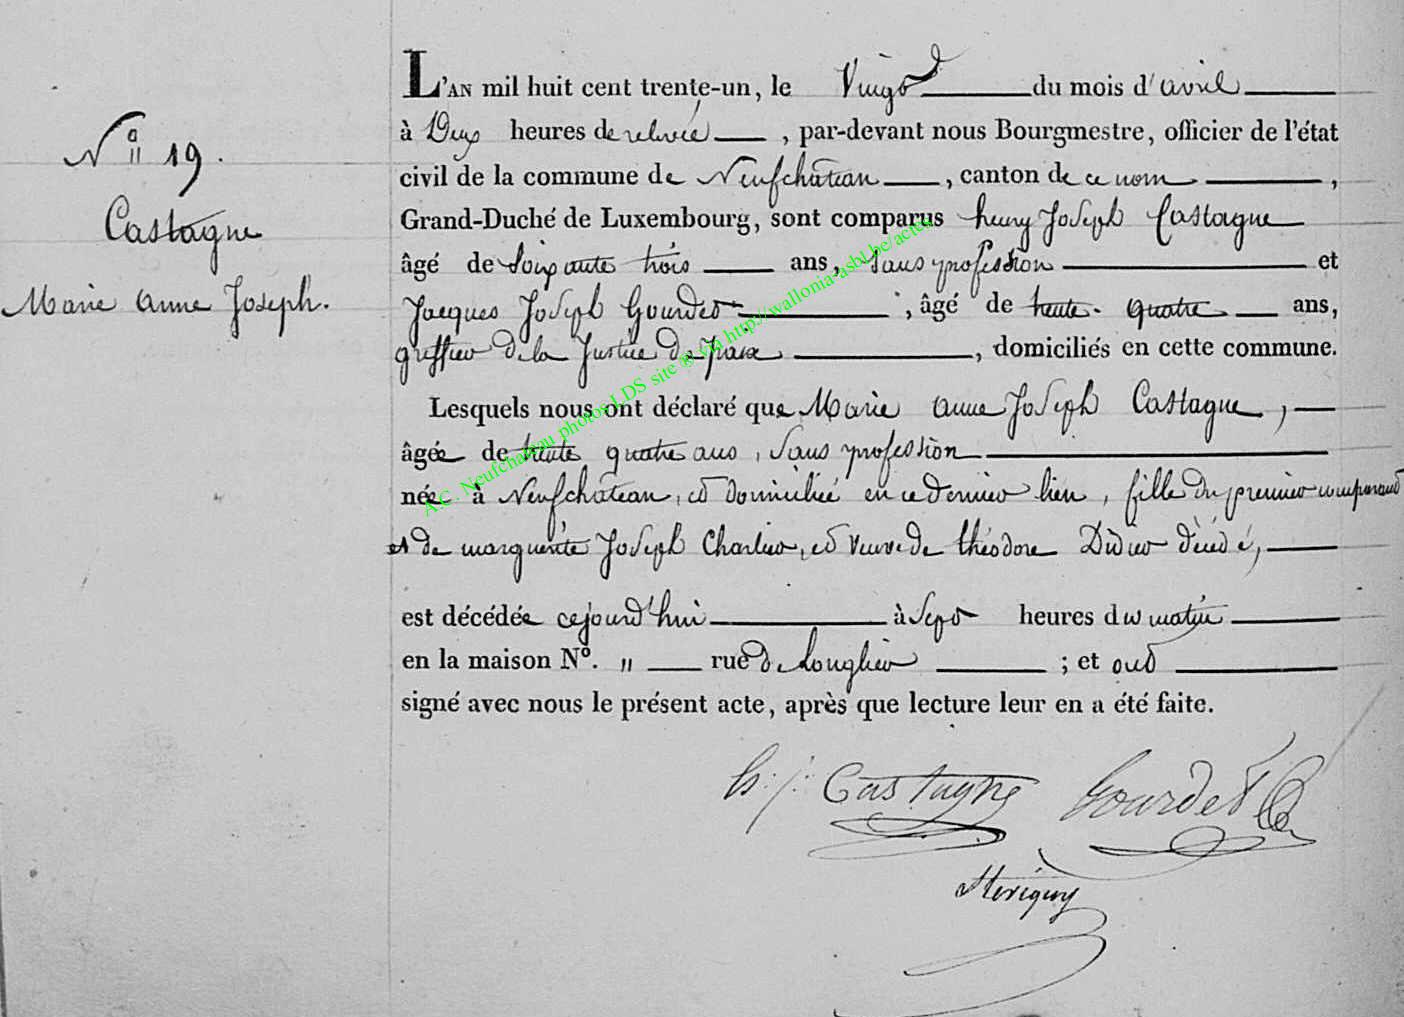 N° 19.
Castagne
Marie Anne Joseph.
L'AN mil huit cent trente-un, le Vingt du mois d'avril
à Deux heures de relevée, par-devant nous Bourgmestre, officier de l'état
civil de la commune de Neufchâteau, canton de ce nom,
Grand-Duché de Luxembourg, sont comparus henry Joseph Castagne
âgé de Soixante trois ans, Sans profession et
Jacques Joseph Gourdet ; âgé de trente-quatre ans,
greffier de la Justice de paix, domiciliés en cette commune.
Lesquels nous ont déclaré que Marie Anne Joseph Castagne,
âgée de trente quatre ans, Sans profession
née à Neufchâteau, et domiciliée en ce dernier lieu, fille du premier comparant
et de marguerite Joseph Charlier, et veuve de théodore Didier décédé,
est décédée cejourd'hui à Sept heures du matin
en la maison N°. " rue de Longlier ; et ont
signé avec nous le présent acte, après que lecture leur en a été faite.
h: j: Castagne Gourdet
A.C. Neufchateau photos LDS site ® via http://wallonia-asbl.be/actes